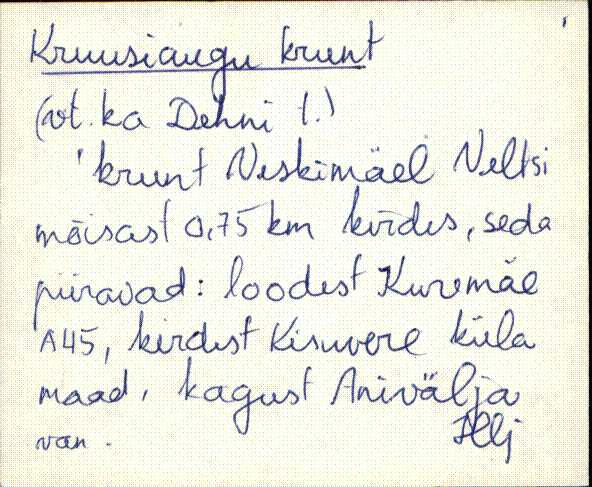 Kruusiaugu krunt
(vt. ka Dehni t.)
'krunt Veskimäel Veltsi
mõisast 0,75 km kirdes, seda
piiravad: loodest Kuremäe
A45, kirdest Kisuvere küla
maad, kagust Anivälja
van.